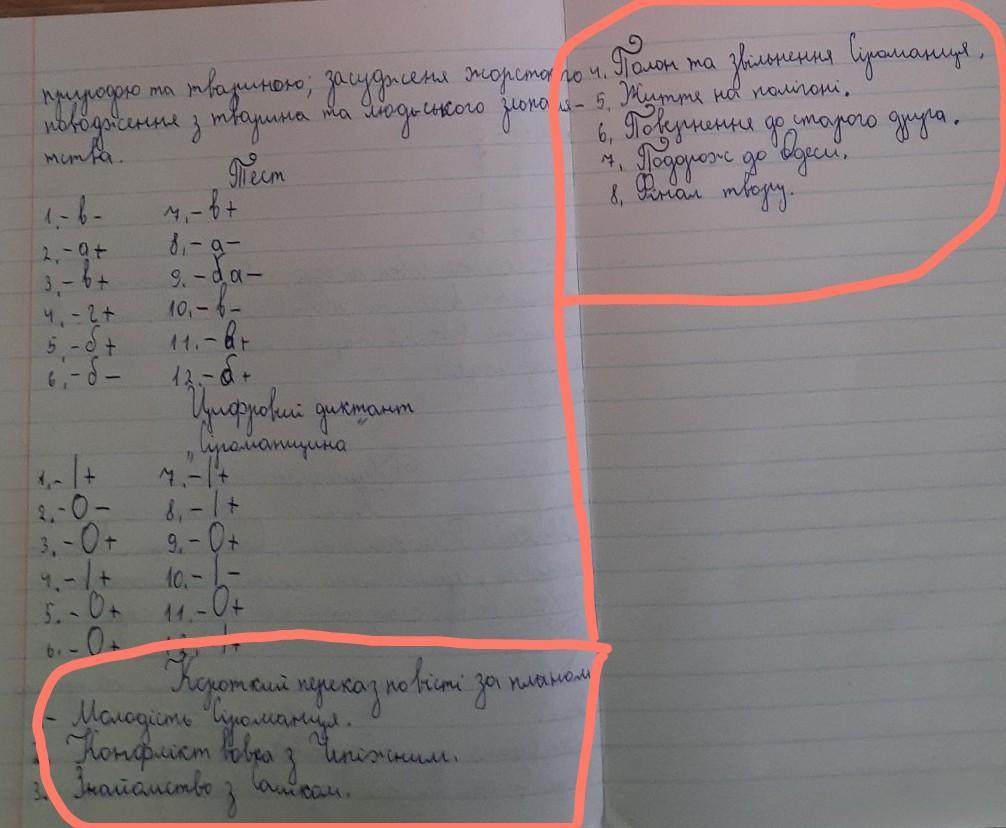 природою та твариною; засудження жорстокого
поводження з тварина та людського зіпаля-
тства.
Тест
1.- в -
2.- а +
3.- в +
4.- г +
5.- б +
6.- б -
7.- в +
8.- а -
9.- ба -
10.- в -
11.- в +
12.- б +
Цифровий диктант
"Сіроманщина"
1.- 1 +
2.- 0 -
3.- 0 +
4.- 1 +
5.- 0 +
6.- 0 +
7.- 1 +
8.- 1 +
9.- 0 +
10.- 1 -
11.- 0 +
12.- 1 +
Короткий переказ повісті за планом
- Молодість Сіроманця.
2. Конфлікт вовка з Чепіжним.
3. Знайомство з Сашком.
4. Полон та звільнення Сіроманця.
5. Життя на полігоні.
6. Повернення до старого друга.
7. Подорож до Одеси.
8. Фінал твору.